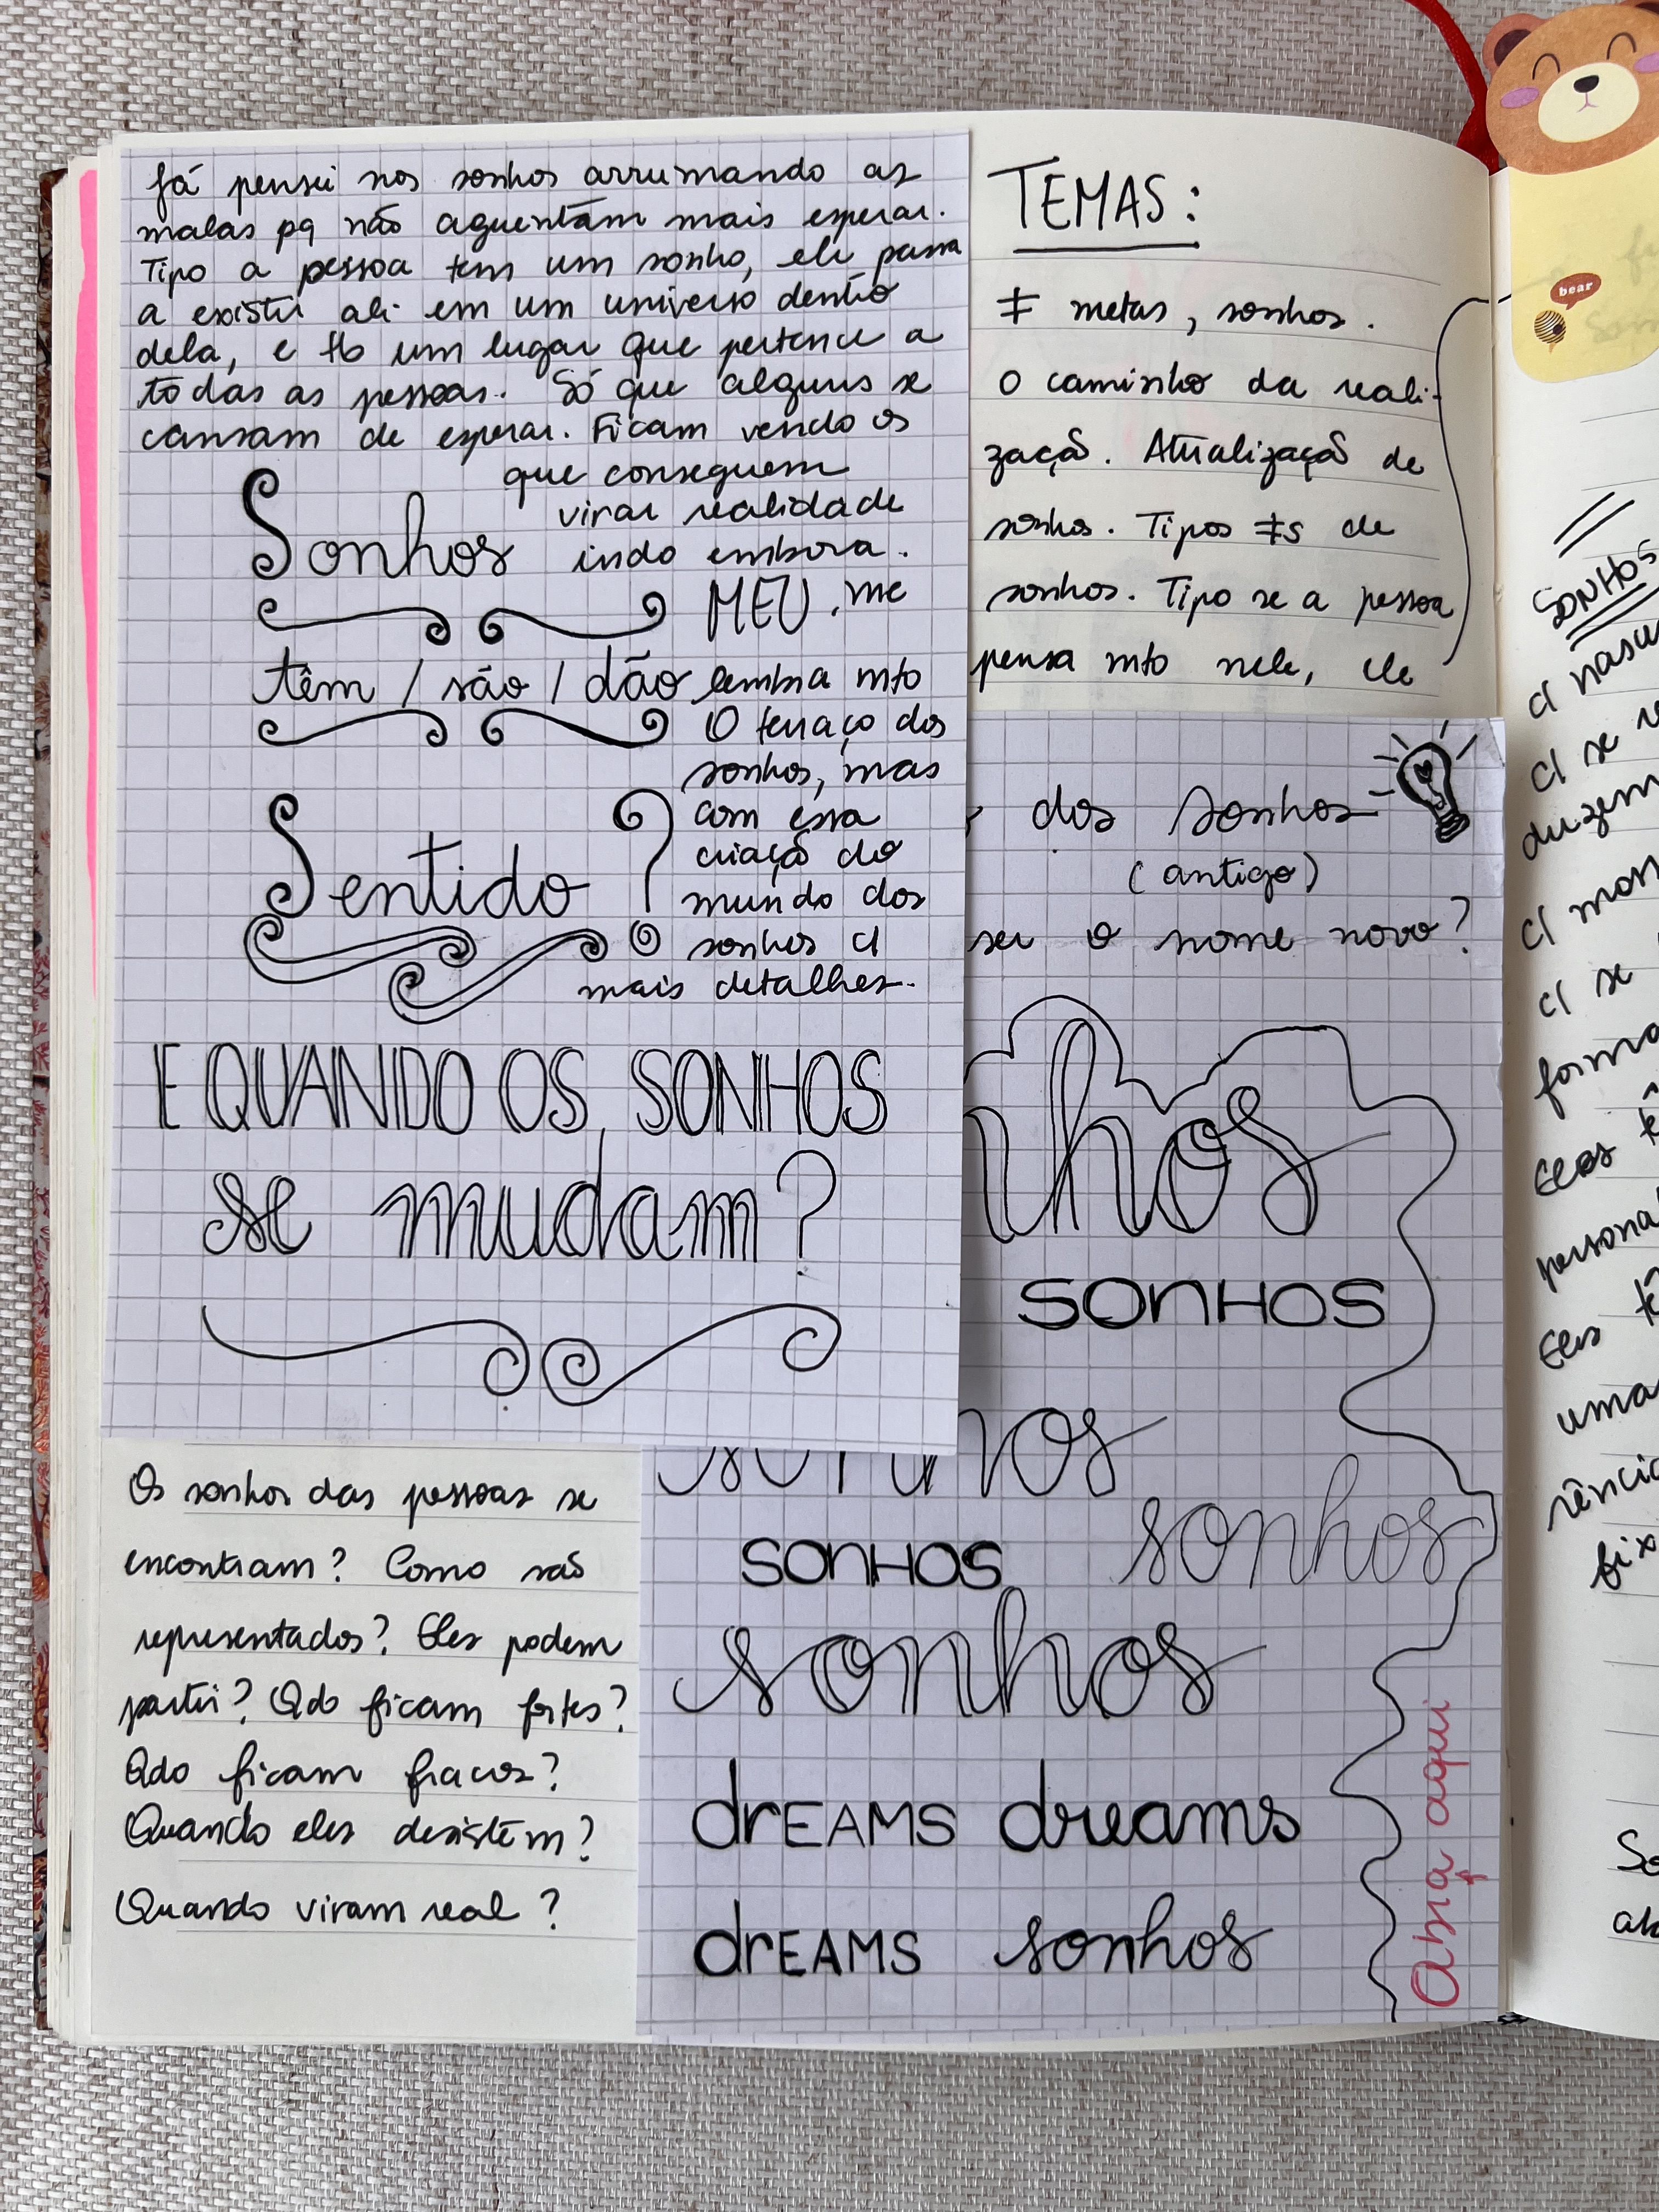 Já pensei nos sonhos arrumando as
malas pq não aguentam mais esperar.
Tipo a pessoa tem um sonho, ele passa
a existir ali em um universo dentro
dela, e tb um lugar que pertence a
todas as pessoas. Só que alguns se
cansam de esperar. Ficam vendo os
que conseguem
virar realidade
indo embora.
MEU, me
lembra mto
O terraço dos
sonhos, mas
com essa
criação do
mundo dos
sonhos c/
mais detalhes.
Sonhos
têm / são / dão
Sentido ?
E QUANDO OS SONHOS
se mudam?
Os sonhos das pessoas se
encontram? Como são
representados? Eles podem
partir? Qdo ficam fortes?
Qdo ficam fracos?
Quando eles desistem?
Quando viram real?
TEMAS:
≠ metas, sonhos.
O caminho da reali-
zação. Atualização de
sonhos. Tipos ≠s de
sonhos. Tipo se a pessoa
pensa mto nele, ele
dos sonhos
(antigo)
ser o nome novo?
nhos
SONHOS
sonhos
SONHOS sonhos
sonhos
dreams dreams
dreams sonhos
Abra aqui
bear
SONHOS
c/ nasce
c/ se
duzem
c/ mor
c/ se
forma
Eles
persona
Eles
uma
rência
fix
So